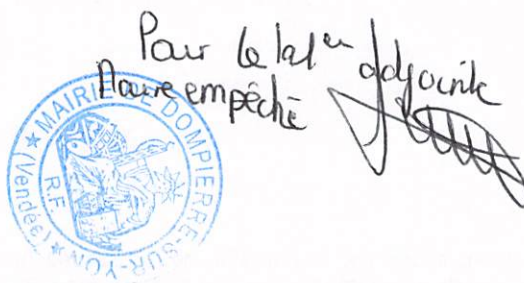 Pour le la 1er adjointe
Maire empêché
MAIRIE DE DOMPIERRE-SUR-YON
★ (Vendée) ★
R.F